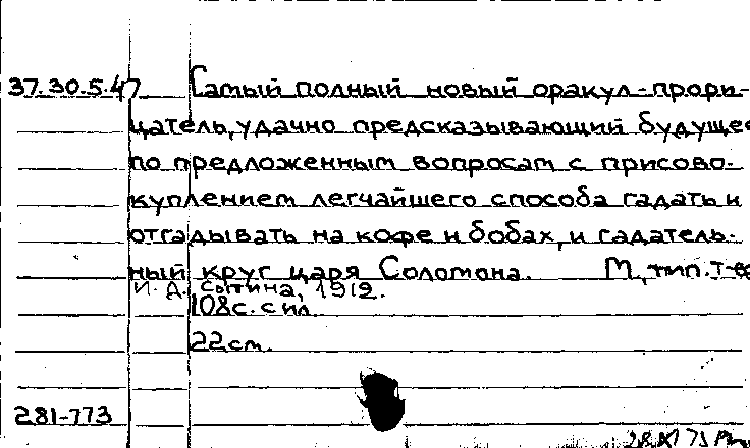 37.30.5.47 Самый полный новый оракул-прори-
цатель, удачно предсказывающий будущее
по предложенным вопросам с присово-
куплением легчайшего способа гадать и
отгадывать на кофе и бобах, и гадатель-
ный круг царя Соломона. М, тип. Т-ва
И. Д. Сытина, 1912.
108с. с ил.
22см.
281-773